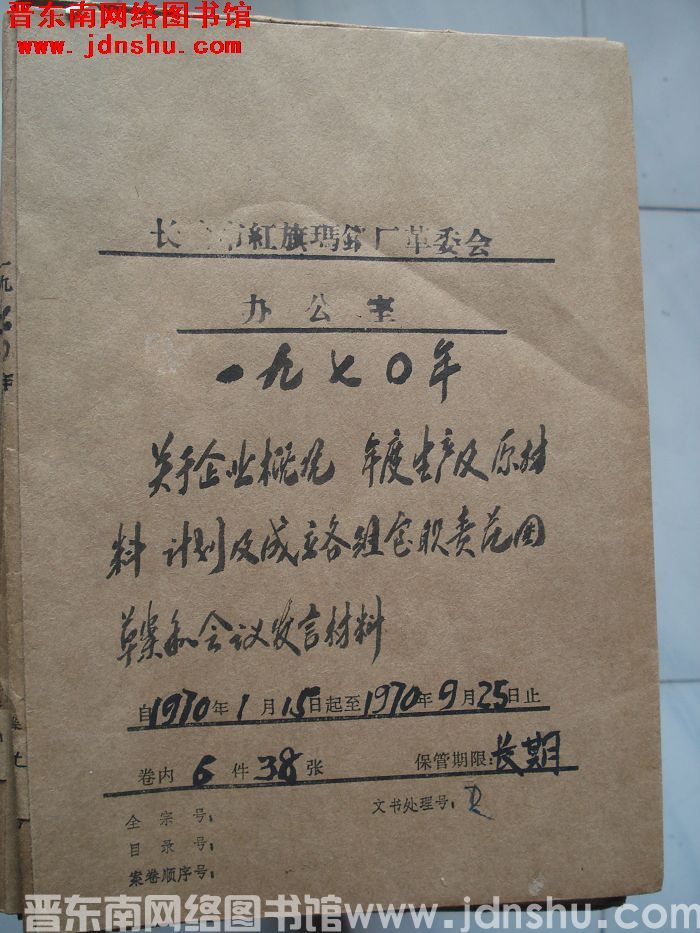 晋东南网络图书馆
www.jdnshu.com
长治市紅旗瑪鋼厂革委会
办公室
一九七〇年
关于企业概况 年度生产及原材
料 计划及成立各组室职责范围
草案和会议发言材料
自1970年1月15日起至1970年9月25日止
卷内6件38张 保管期限:长期
全宗号: 文书处理号:
目录号:
案卷顺序号:
晋东南网络图书馆 www.jdnshu.com